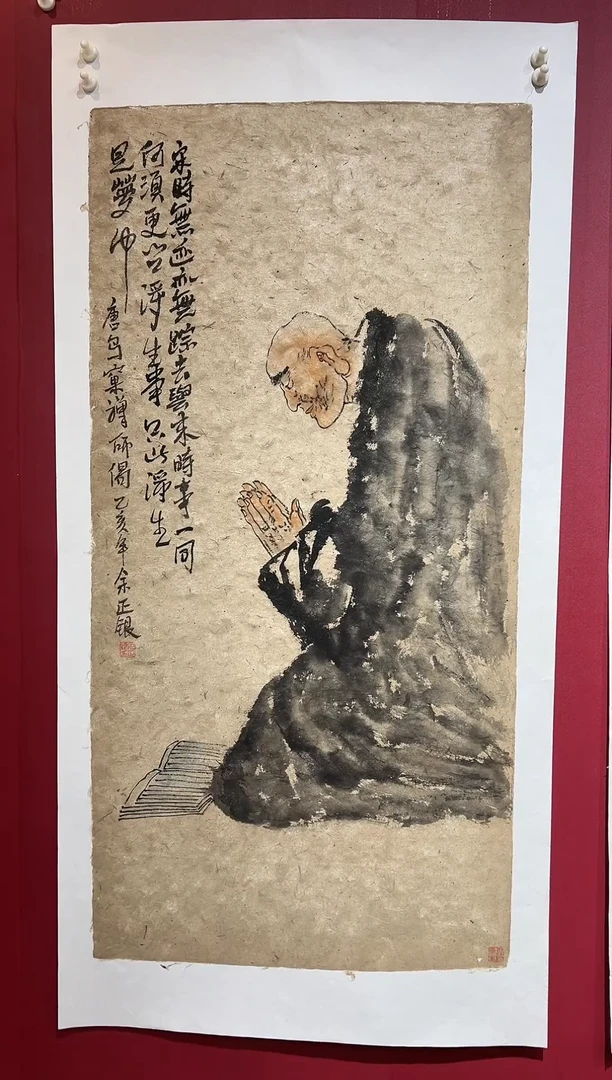 来時無迹亦無踪去與来時事一同
何須更问浮生事只此浮生
是夢中
唐鸟窠禪师偈乙亥年余正银